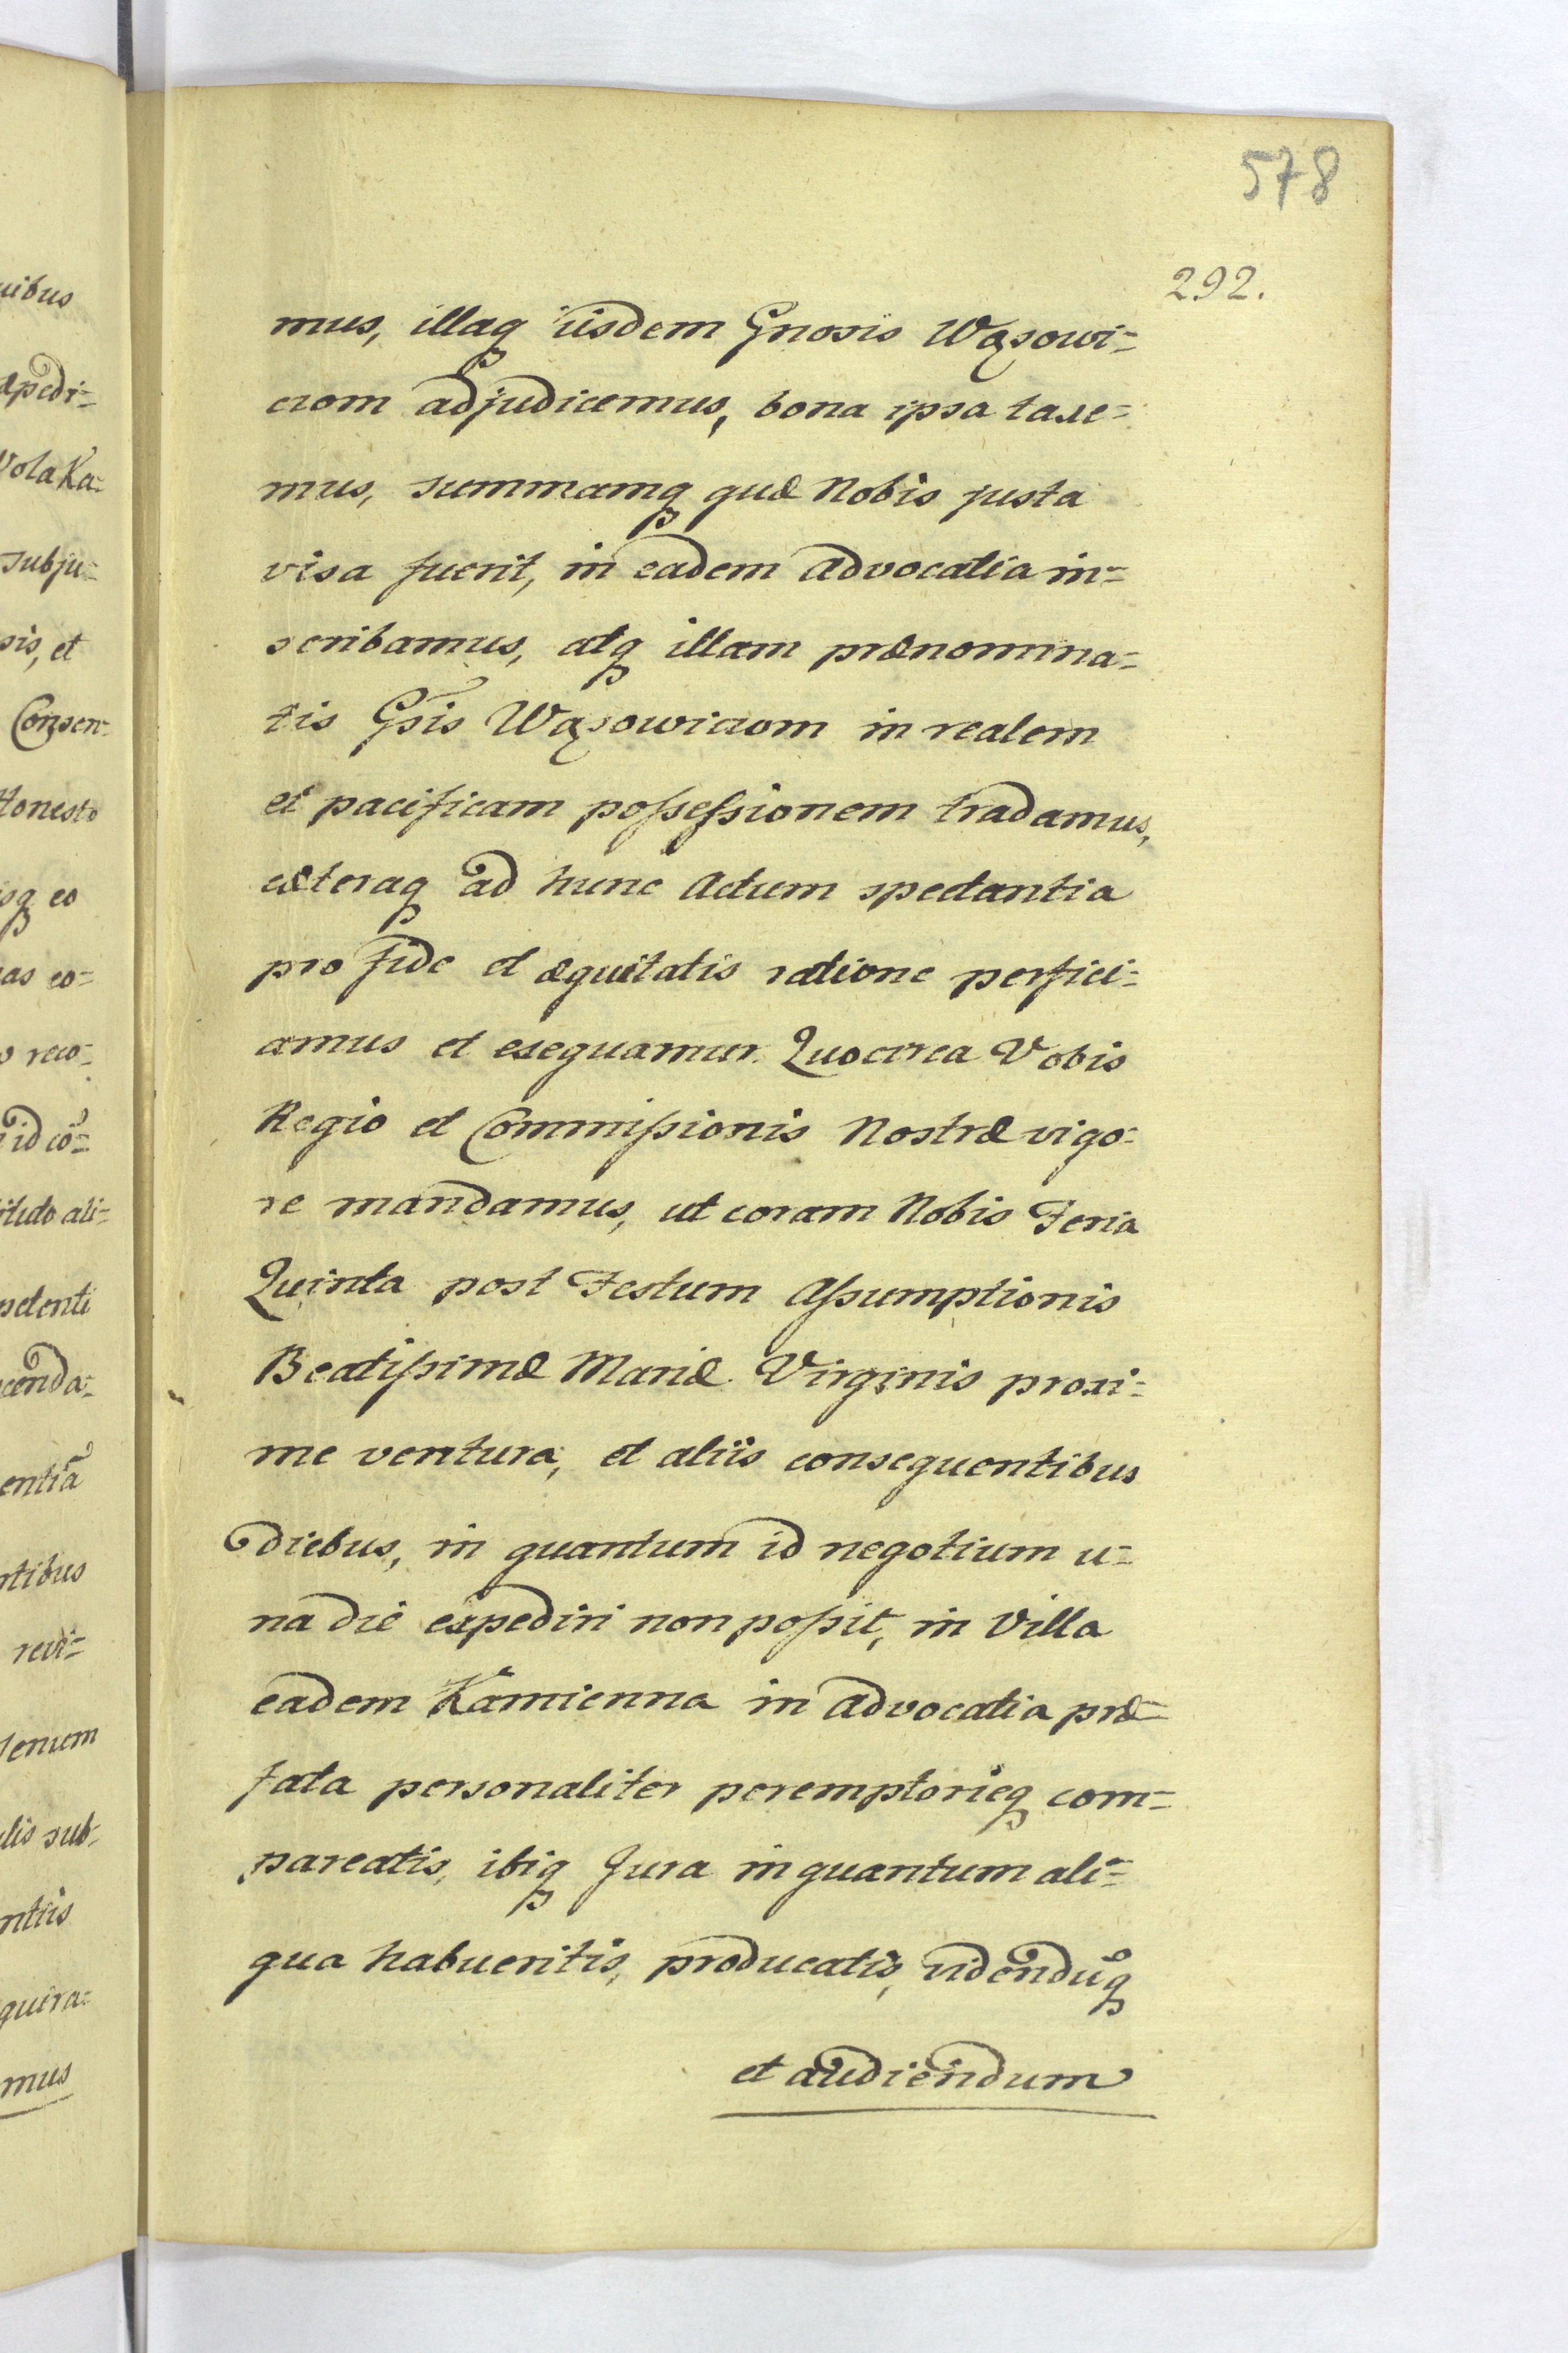 578
292.
mus, illaq iisdem Gnosis Wąsowi=
ciom adjudicemus, bona ipsa taxe=
mus, summamq quæ Nobis justa
visa fuerit, in eadem Advocatia in=
scribamus, atq illam prænomina=
tis Gsis Wąsowiciom in realem
et pacificam possessionem tradamus,
cæteraq ad hunc Actum spectantia
pro fide et æquitatis ratione perfici=
amus et exequamur. Quocirca Vobis
Regio et Commissionis Nostræ vigo=
re mandamus, ut coram Nobis Feria
Quinta post Festum Assumptionis
Beatissimæ Mariæ Virginis proxi=
me ventura, et aliis consequentibus
diebus, in quantum id negotium u=
na die expediri non possit, in Villa
eadem Kamienna in Advocatia præ=
fata personaliter peremptorieq com=
pareatis, ibiq Jura in quantum ali=
qua habueritis, producatis, videndũq
et audiendum
uibus
xpedi=
Wola Ka=
subju=
sis, et
Consen=
Honesto
isq eo
as eo=
reco=
id cõ=
ali=
petenti
cenda=
entiã
ntibus
revi=
lis sub=
ntiis
quira=
mus